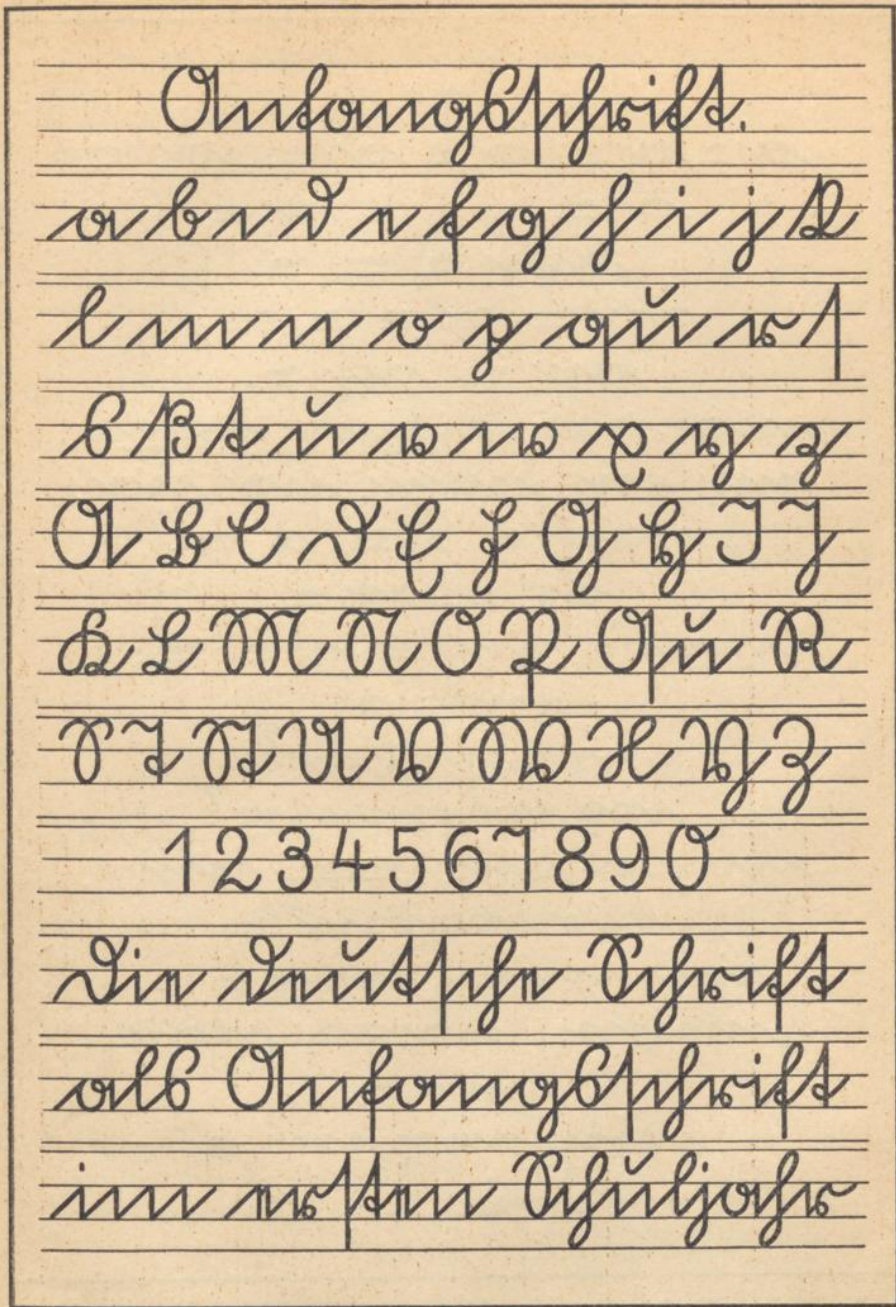 Anfangsſchrift.
a b c d e f g h i j k
l m n o p qu r ſ
s ß t u v w x y z
A B C D E F G H I J
K L M N O P Qu R
S T St U V W X Y Z
1 2 3 4 5 6 7 8 9 0
Die deutſche Schrift
als Anfangsſchrift
im erſten Schuljahr